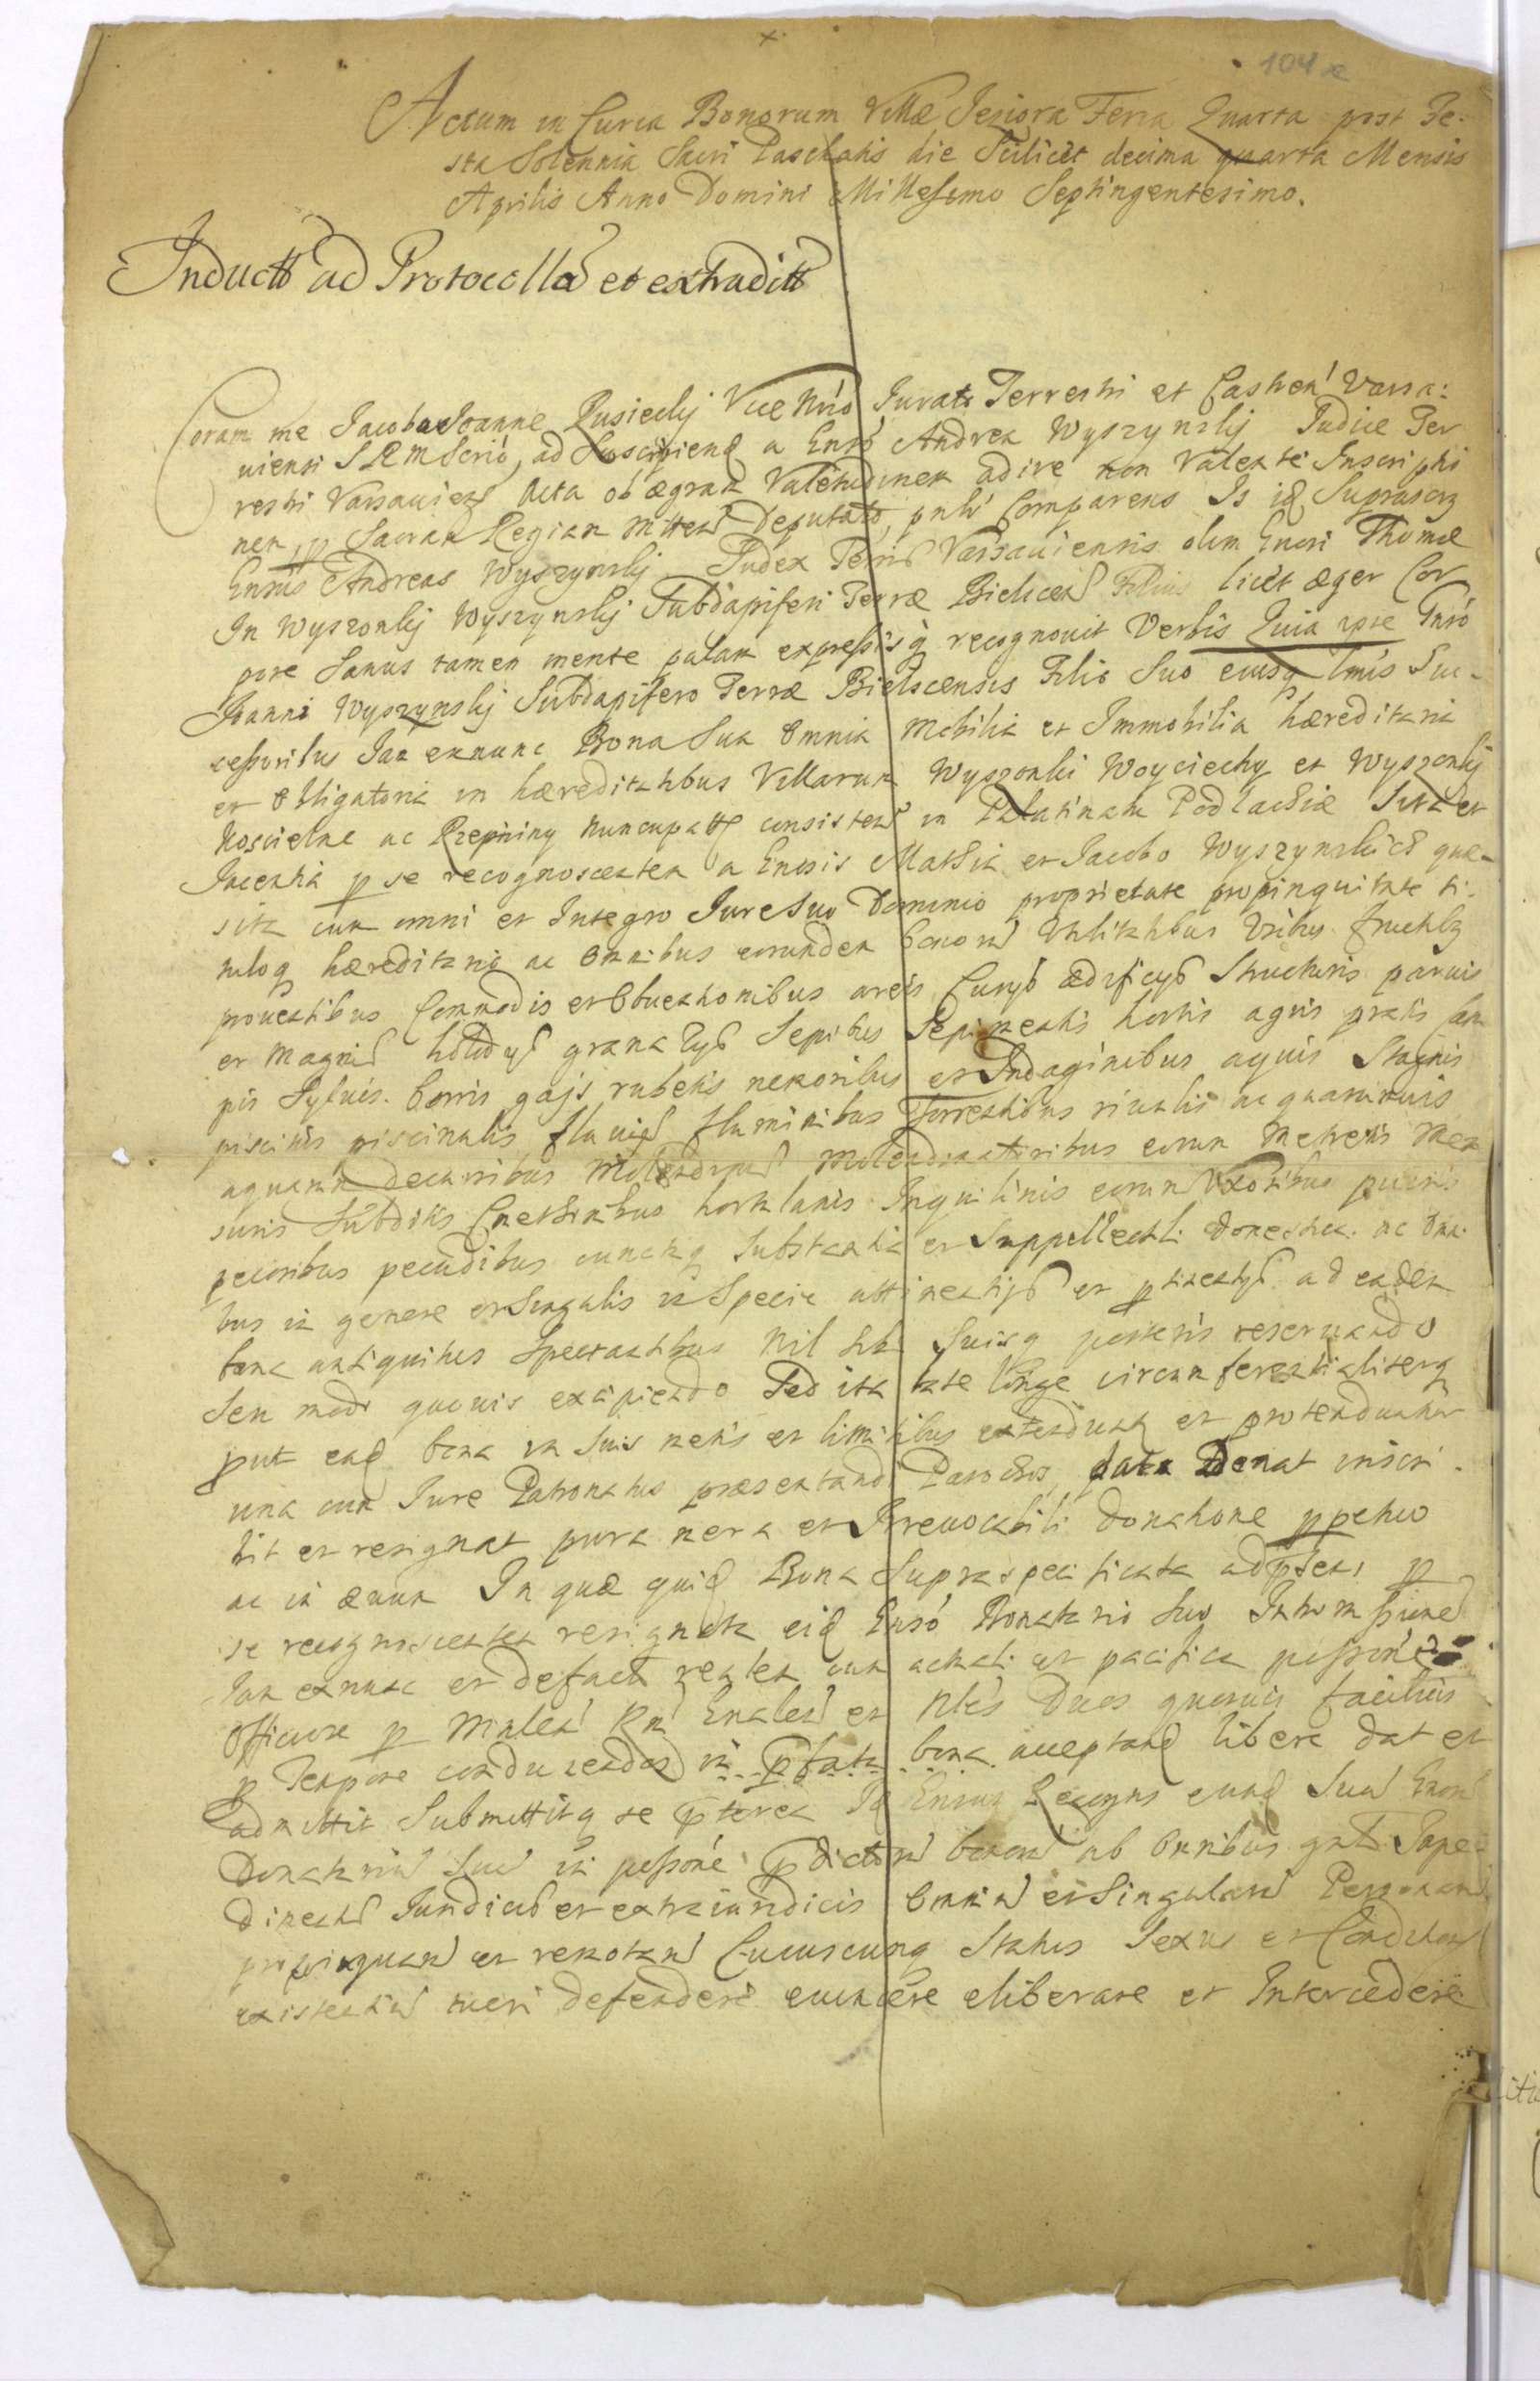 104
Actum in Curia Bonorum Villæ Jeziora Feria Quarta post Fe-
sta Solennia Sacri Paschatis die Scilicet decima quarta Mensis
Aprilis Anno Domini Millesimo Septingentesimo.
Induct ad Protocolla et extradit
Coram me Jacobo Joanne Rusiecky Vice Nrio Jurato Terrestri et Castren Varsa:
uiensi SRM Scrio, ad Suscipiend a Gnso Andrea Wyszynsky Judice Ter
restri Varsauien Acta ob ægram Valetudinem adire non Valente Inscriptio
nem, p Sacram Regiam Mttem Deputato, pntr Comparens Is id Suprascrip
Gnsus Andreas Wyszynsky Judex Terris Varsauiensis olim Gnosi Thomæ
In Wyszonky Wyszynsky Subdapiferi Terræ Bielscen Filius licet æger Cor
pore Sanus tamen mente palam expressisq recognouit Verbis Quia ipse Gnso
Joanni Wyszynsky Subdapifero Terræ Bielscensis Filio Suo eiusq lmis Suc-
cessoribus Jam exnunc Bona Sua Omnia Mobilia et Immobilia hæreditaria
et Obligatoria in hæreditatibus Villarum Wyszonki Woyciechy et Wyszonky
Koscielne ac Rzepniny Nuncupatt consisten in Palatinatu Podlachiæ Sita et
Jacentia p se recognoscentem a Gnosis Mathia et Jacobo Wyszynskich quæ-
sita cum omni et Integro Jure Suo Dominio proprietate propinquitate ti-
tuloq hæreditario ac Omnibus eorundem bonorum Vtilitatibus Vsibus fructibq
prouentibus Commodis et Obuentionibus areis Curys ædificys Structuris paruis
et Magnis granarys Sepibus Sepimentis hortis agris pratis Cam
pis Syluis. borris gajs rubetis nemoribus et Indaginibus aquis Stagnis
piscinis piscinulis fluuis fluminibus Torrentibus riuulis ac quarumuis
aquarum decursibus Molendinis Molendinatoribus eorum Metretis Men
suris Subditis Cmethonibus hortulanis Inquilinis eorum Uxoribus pueris
pecoribus pecudibus cunctaq Substantia et Suppellectli domestica. ac Omi
bus in genere et Singulis in Specie attinentys et ptinentys ad eadem
bona antiquitus Spectantibus Nil Sibi Suisq posteris reseruando
Seu modo quouis excipiendo Sed ita late longe circumferentialiterq
put ead bona in Suis metis et limitibus extendunt et protenduntur
una cum Jure Patronatus præsentandi Parochos, data Donat inscri-
bit et resignat pura mera et Irreuocabili donatione ppetuo
ac in æuum In quæ quid Bona Supraspecificata ad psens p
se recognoscentem resignata eid Gnso Donatario Suo Intromissione
Jam exnunc et defacto realem cum actuali et pacifica possione
Officiose p Minlem Rni Gnalem et Nbles Duos quosuis facilius
p Tempore conducendos in pfata bona acceptand libere dat et
admittit Submittitq se pterea Id Gnsus Recogns eund Suum Gnsum
Donatarium Suum in possione pdictorum bonorum ab Omnibus gnlr Impe-
dimentis Juridicis et extraiuridicis Omnium et Singularum Personarum
propinquarum et remotarum Cuiuscunq Status Sexus et Condition
existentium tueri defendere euincere eliberare et Intercedere